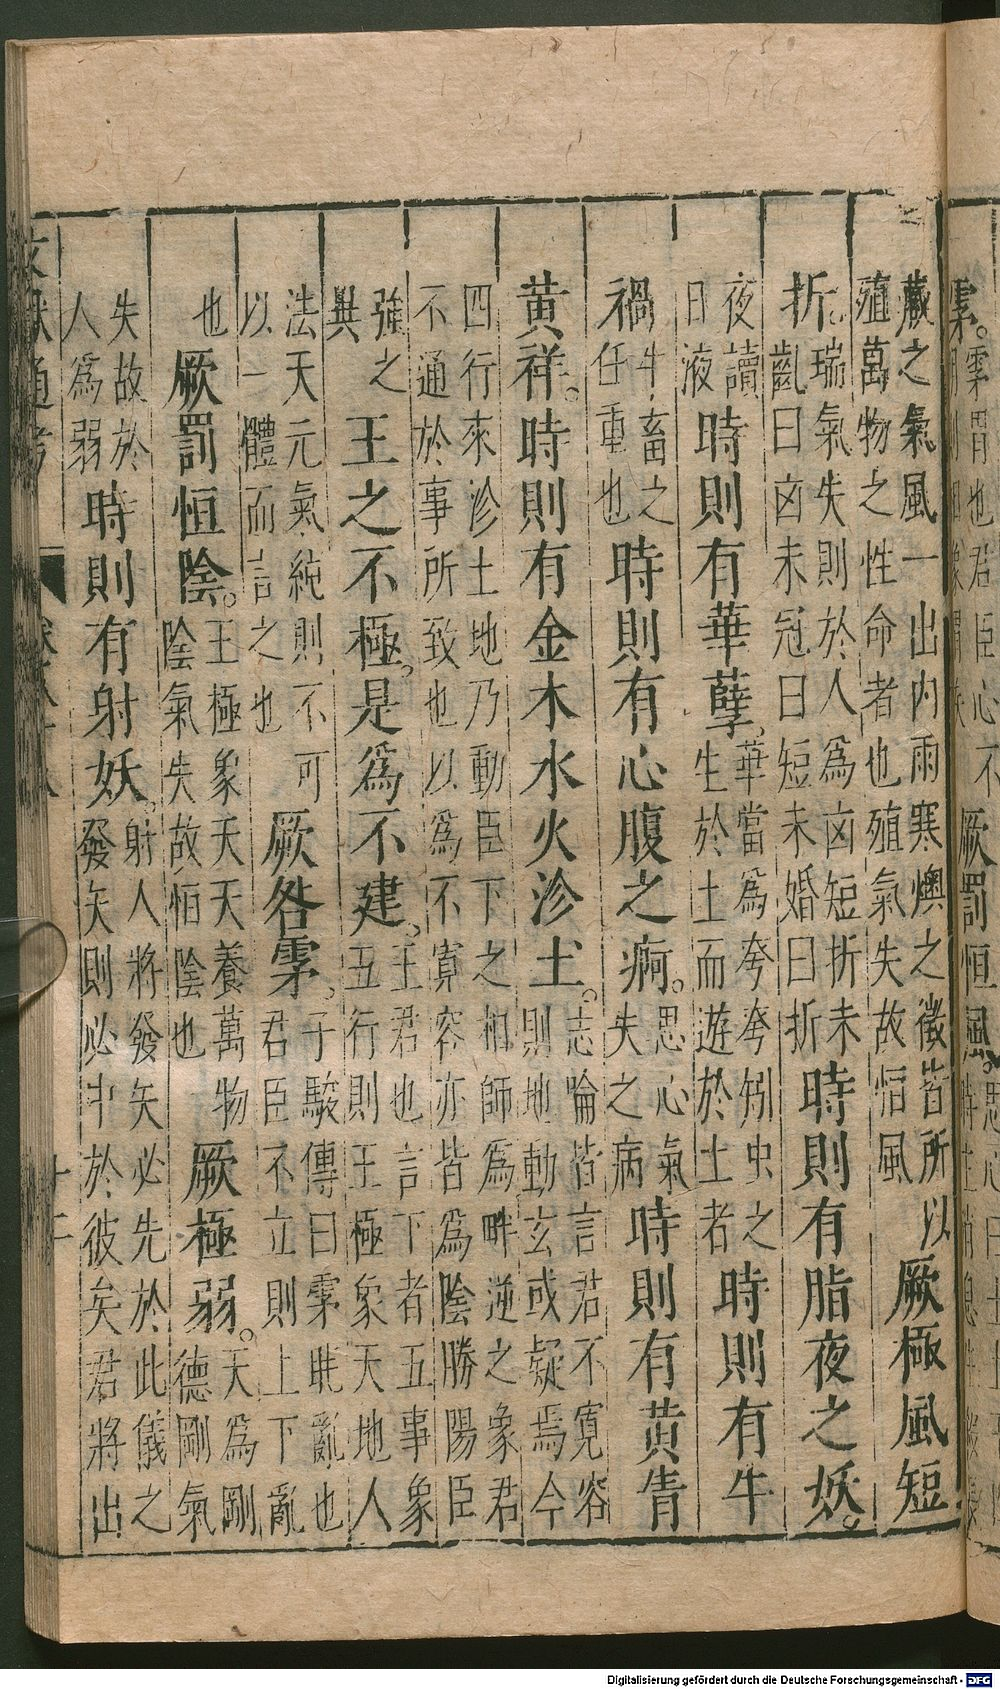 藏之氣風一出內雨寒燠之徵皆所以
殖萬物之性命者也殖氣失故恒風
厥極風短
折。
瑞氣失則於人為㐫短折未
齔曰㐫未冠曰短未婚曰折
時則有脂夜之妖。
夜讀
曰液
時則有華孽。
華當為夸夸蚓虫之
生於土而遊於土者
時則有牛
禍
牛畜之
任重也
時則有心腹之痾。
思心氣
失之病
時則有黃眚
黃祥。時則有金木水火沴土。
志論皆言君不寬容
則地動玄或疑焉今
四行來沴土地乃動臣下之相師為畔逆之象君
不通於事所致也以為不寬容亦皆為陰勝陽臣
強之
異
王之不極。是為不建。
王君也言下者五事象
五行則王極象天地人
法天元氣純則不可
以一體而言之也
厥咎雺。
子駿傳曰雺眊亂也
君臣不立則上下亂
也
厥罰恒陰。
王極象天天養萬物
陰氣失故恒陰也
厥極弱。
天為剛
德剛氣
失故於
人為弱
時則有射妖。
射人將發矢必先於此儀之
發矢則必中於彼矣君將出
文獻通考
十二
雺。
雺冒也君臣心不
厥罰恒風。
Digitalisierung gefördert durch die Deutsche Forschungsgemeinschaft - DFG